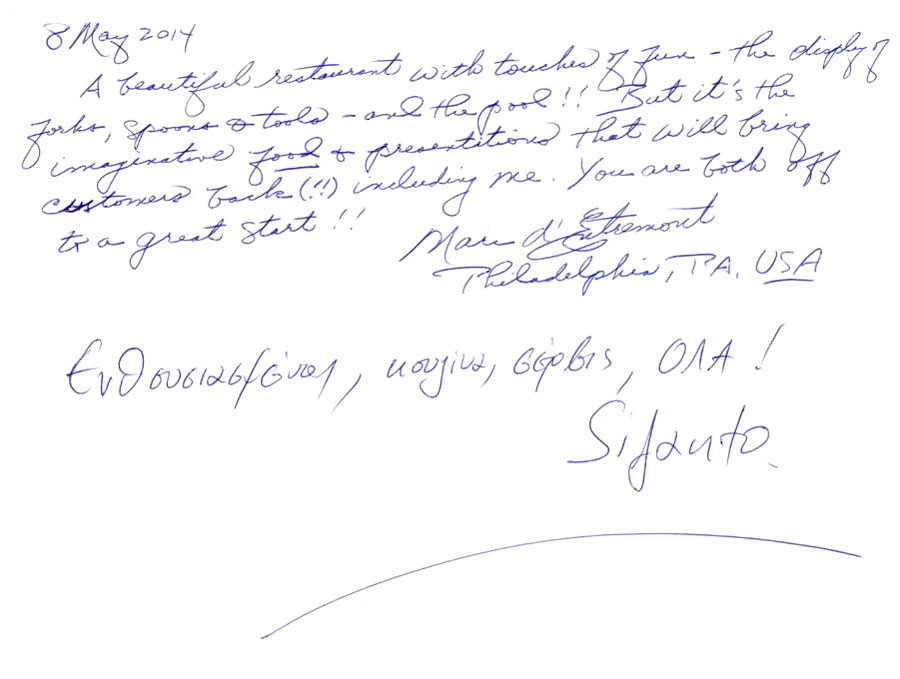 8 May 2014
A beautiful restaurant with touches of fun - the display of
forks, spoons & tools - and the pool!! But it's the
imaginative food & presentitions that will bring
customers back (!!) including me. You are both off
to a great start!!
Marc d'Entremont
Philadelphia, PA. USA
κουζινα, σέρβις, ΟΛΑ!